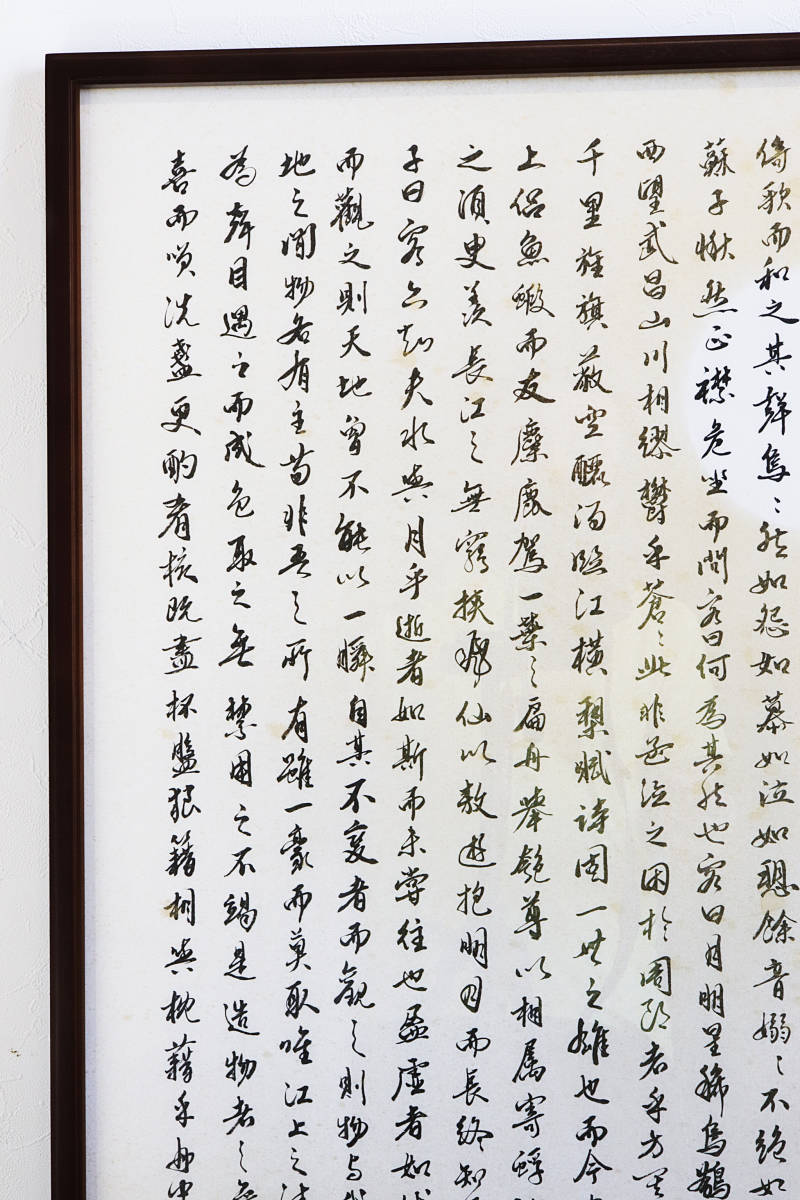 倚歌而和之其聲烏〻然如怨如慕如泣如愬餘音嫋〻不絕如
蘇子愀然正襟危坐而問客曰何為其然也客曰月明星稀烏鵲
西望武昌山川相繆鬱乎蒼〻此非孟德之困於周郎者乎方其
千里旌旗蔽空釃酒臨江橫槊賦詩固一世之雄也而今
上侶魚蝦而友麋鹿駕一葉之扁舟舉匏尊以相屬寄蜉
之須臾羨長江之無窮挾飛仙以敖遊抱明月而長終知
子曰客亦知夫水與月乎逝者如斯而未嘗往也盈虛者如
而觀之則天地曾不能以一瞬自其不變者而觀之則物與
地之間物各有主苟非吾之所有雖一豪而莫取唯江上之清
為聲目遇之而成色取之無禁用之不竭是造物者之無
喜而笑洗盞更酌肴核既盡杯盤狼籍相與枕藉乎舟中